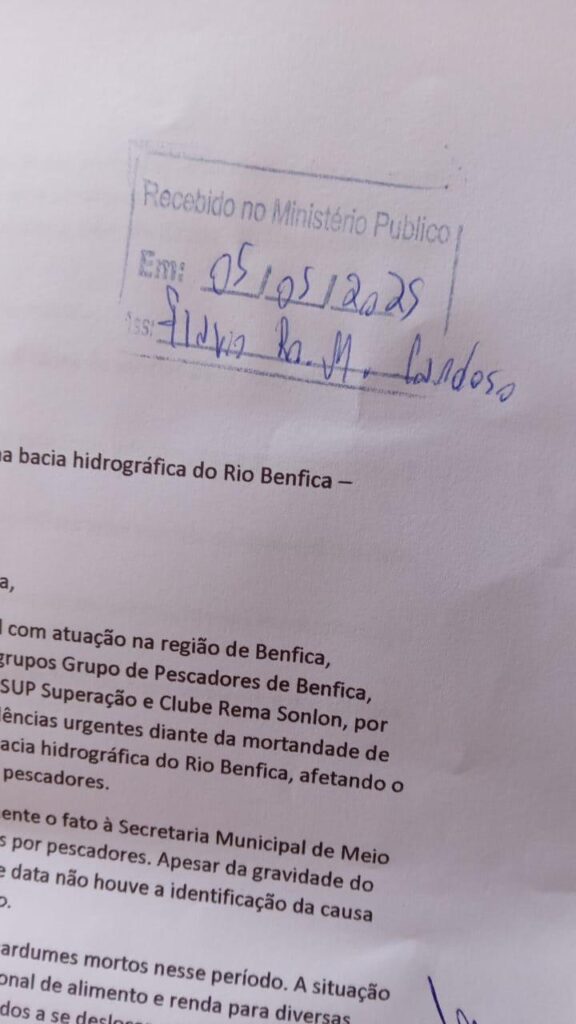 Recebido no Ministério Publico
Em: 05/05/2025
Ass: Flávio Ro. M. Cardoso
na bacia hidrográfica do Rio Benfica –
a,
l com atuação na região de Benfica,
grupos Grupo de Pescadores de Benfica,
SUP Superação e Clube Rema Sonlon, por
dências urgentes diante da mortandade de
bacia hidrográfica do Rio Benfica, afetando o
pescadores.
ente o fato à Secretaria Municipal de Meio
s por pescadores. Apesar da gravidade do
e data não houve a identificação da causa
o.
ardumes mortos nesse período. A situação
onal de alimento e renda para diversas
dos a se